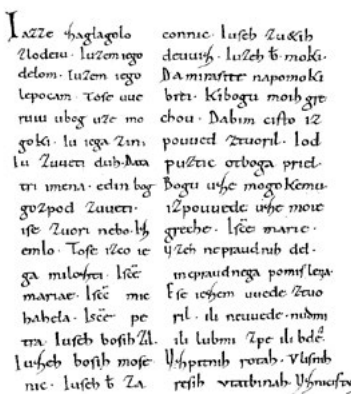 Iazze zaglagolo
zlodeiu · Iuzem iego
delom · Iuzem iego
lepocam · Tose uue
ruiu ubog uze mo
goki · Iu iega zin ·
Iu zuueti duh · Data
tri imena · edin bog
gozpod zuueti ·
ise zuori nebo · Iz
emlo · Tose izco ie
ga milosti · Iscē
mariae · Iscē mic
hahela · Iscē pe
tra Iuseh bosih zil ·
Iuseh bosih mose
nic · Iuseh b̄ za
connic · Iuseh zuetih
deuuiz · Iuzeh b̄ · moki ·
Da mirasite napomoki
biti · Kibogu moih gre
chou · Dabim cisto iz
pouued ztuoril · Iod
puztic otboga priel ·
Bogu uze mogokemu
izpouuede uze moie
greche · Iscē marie ·
uzeh nepraudnih del ·
inepraudnega pomislena ·
Ese iezem uuede ztuo
ril · ili neuuede · nudmi
ili lubmi zpe ili bdē
Uzpitnih rotah · Vlisnih
resih vtatbinah · Uznicistu